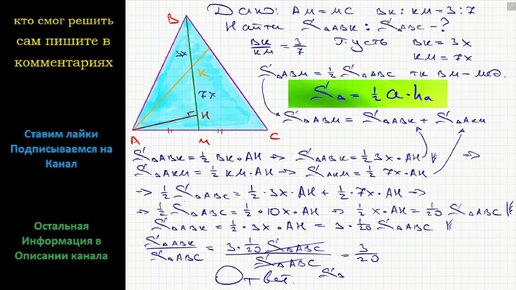 кто смог решить
сам пишите в
комментариях
Ставим лайки
Подписываемся на
Канал
Остальная
Информация в
Описании канала
B
3x
K
7x
H
A
M
C
Дано: AM = MC BK : KM = 3 : 7
Найти S△ABK : S△ABC - ?
BK/KM = 3/7 Пусть BK = 3x
KM = 7x
S△ABM = 1/2 S△ABC тк BM - мед.
S△ = 1/2 a · hₐ
S△ABM = S△ABK + S△AKM
S△ABK = 1/2 BK · AH ⇒ S△ABK = 1/2 3x · AH ⇒
S△AKM = 1/2 KM · AH ⇒ S△AKM = 1/2 7x · AH
⇒ 1/2 S△ABC = 1/2 · 3x · AH + 1/2 · 7x · AH ⇒
⇒ 1/2 S△ABC = 1/2 · 10x · AH ⇒ 1/2 x · AH = 1/20 S△ABC
S△ABK = 1/2 · 3x · AH = 3 · 1/20 S△ABC
S△ABK/S△ABC = 3 · 1/20 S△ABC/S△ABC = 3/20
Ответ. S△